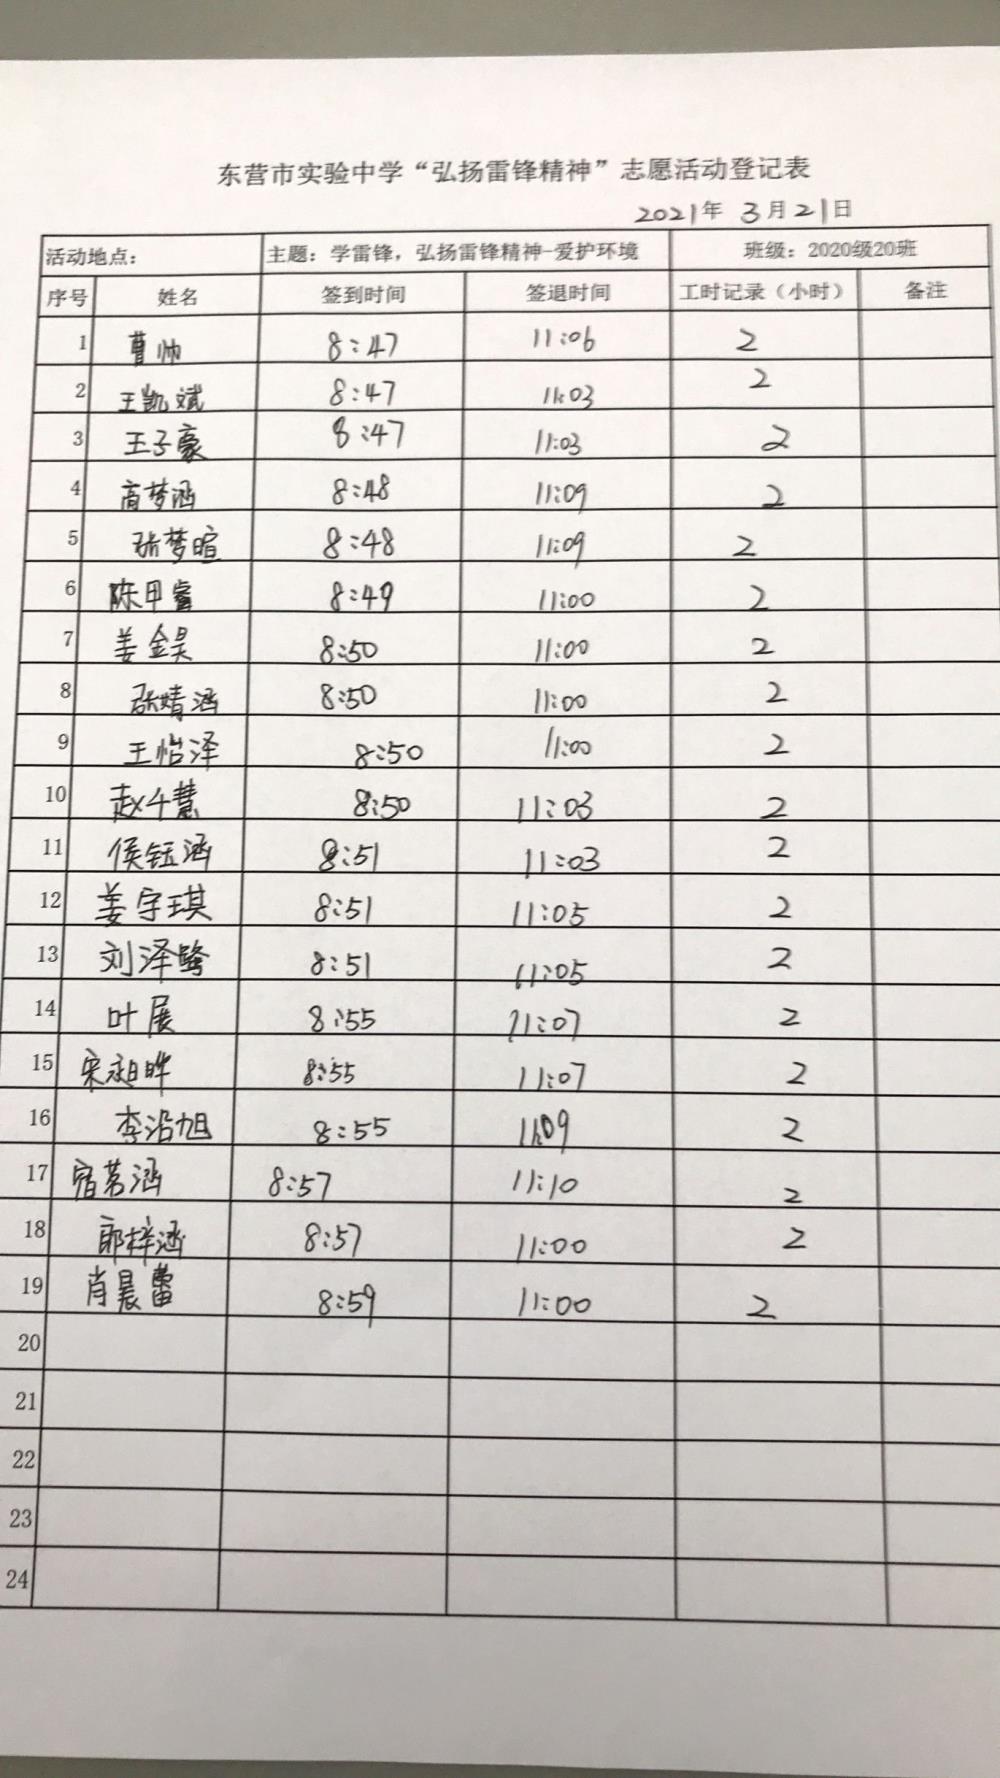 东营市实验中学“弘扬雷锋精神”志愿活动登记表
2021年 3月21日
活动地点： 主题：学雷锋，弘扬雷锋精神-爱护环境 班级：2020级20班
序号 姓名 签到时间 签退时间 工时记录（小时） 备注
1 曹帅 8:47 11:06 2
2 王凯斌 8:47 11:03 2
3 王子豪 8:47 11:03 2
4 商梦涵 8:48 11:09 2
5 张梦暄 8:48 11:09 2
6 陈甲睿 8:49 11:00 2
7 姜金昊 8:50 11:00 2
8 张婧涵 8:50 11:00 2
9 王怡泽 8:50 11:00 2
10 赵千慧 8:50 11:03 2
11 侯钰涵 8:51 11:03 2
12 姜宇琪 8:51 11:05 2
13 刘泽鹭 8:51 11:05 2
14 叶展 8:55 11:07 2
15 8:55 11:07 2
16 李沿旭 8:55 11:09 2
17 宿茗涵 8:57 11:10 2
18 郎梓涵 8:57 11:00 2
19 肖晨蕾 8:59 11:00 2
20
21
22
23
24